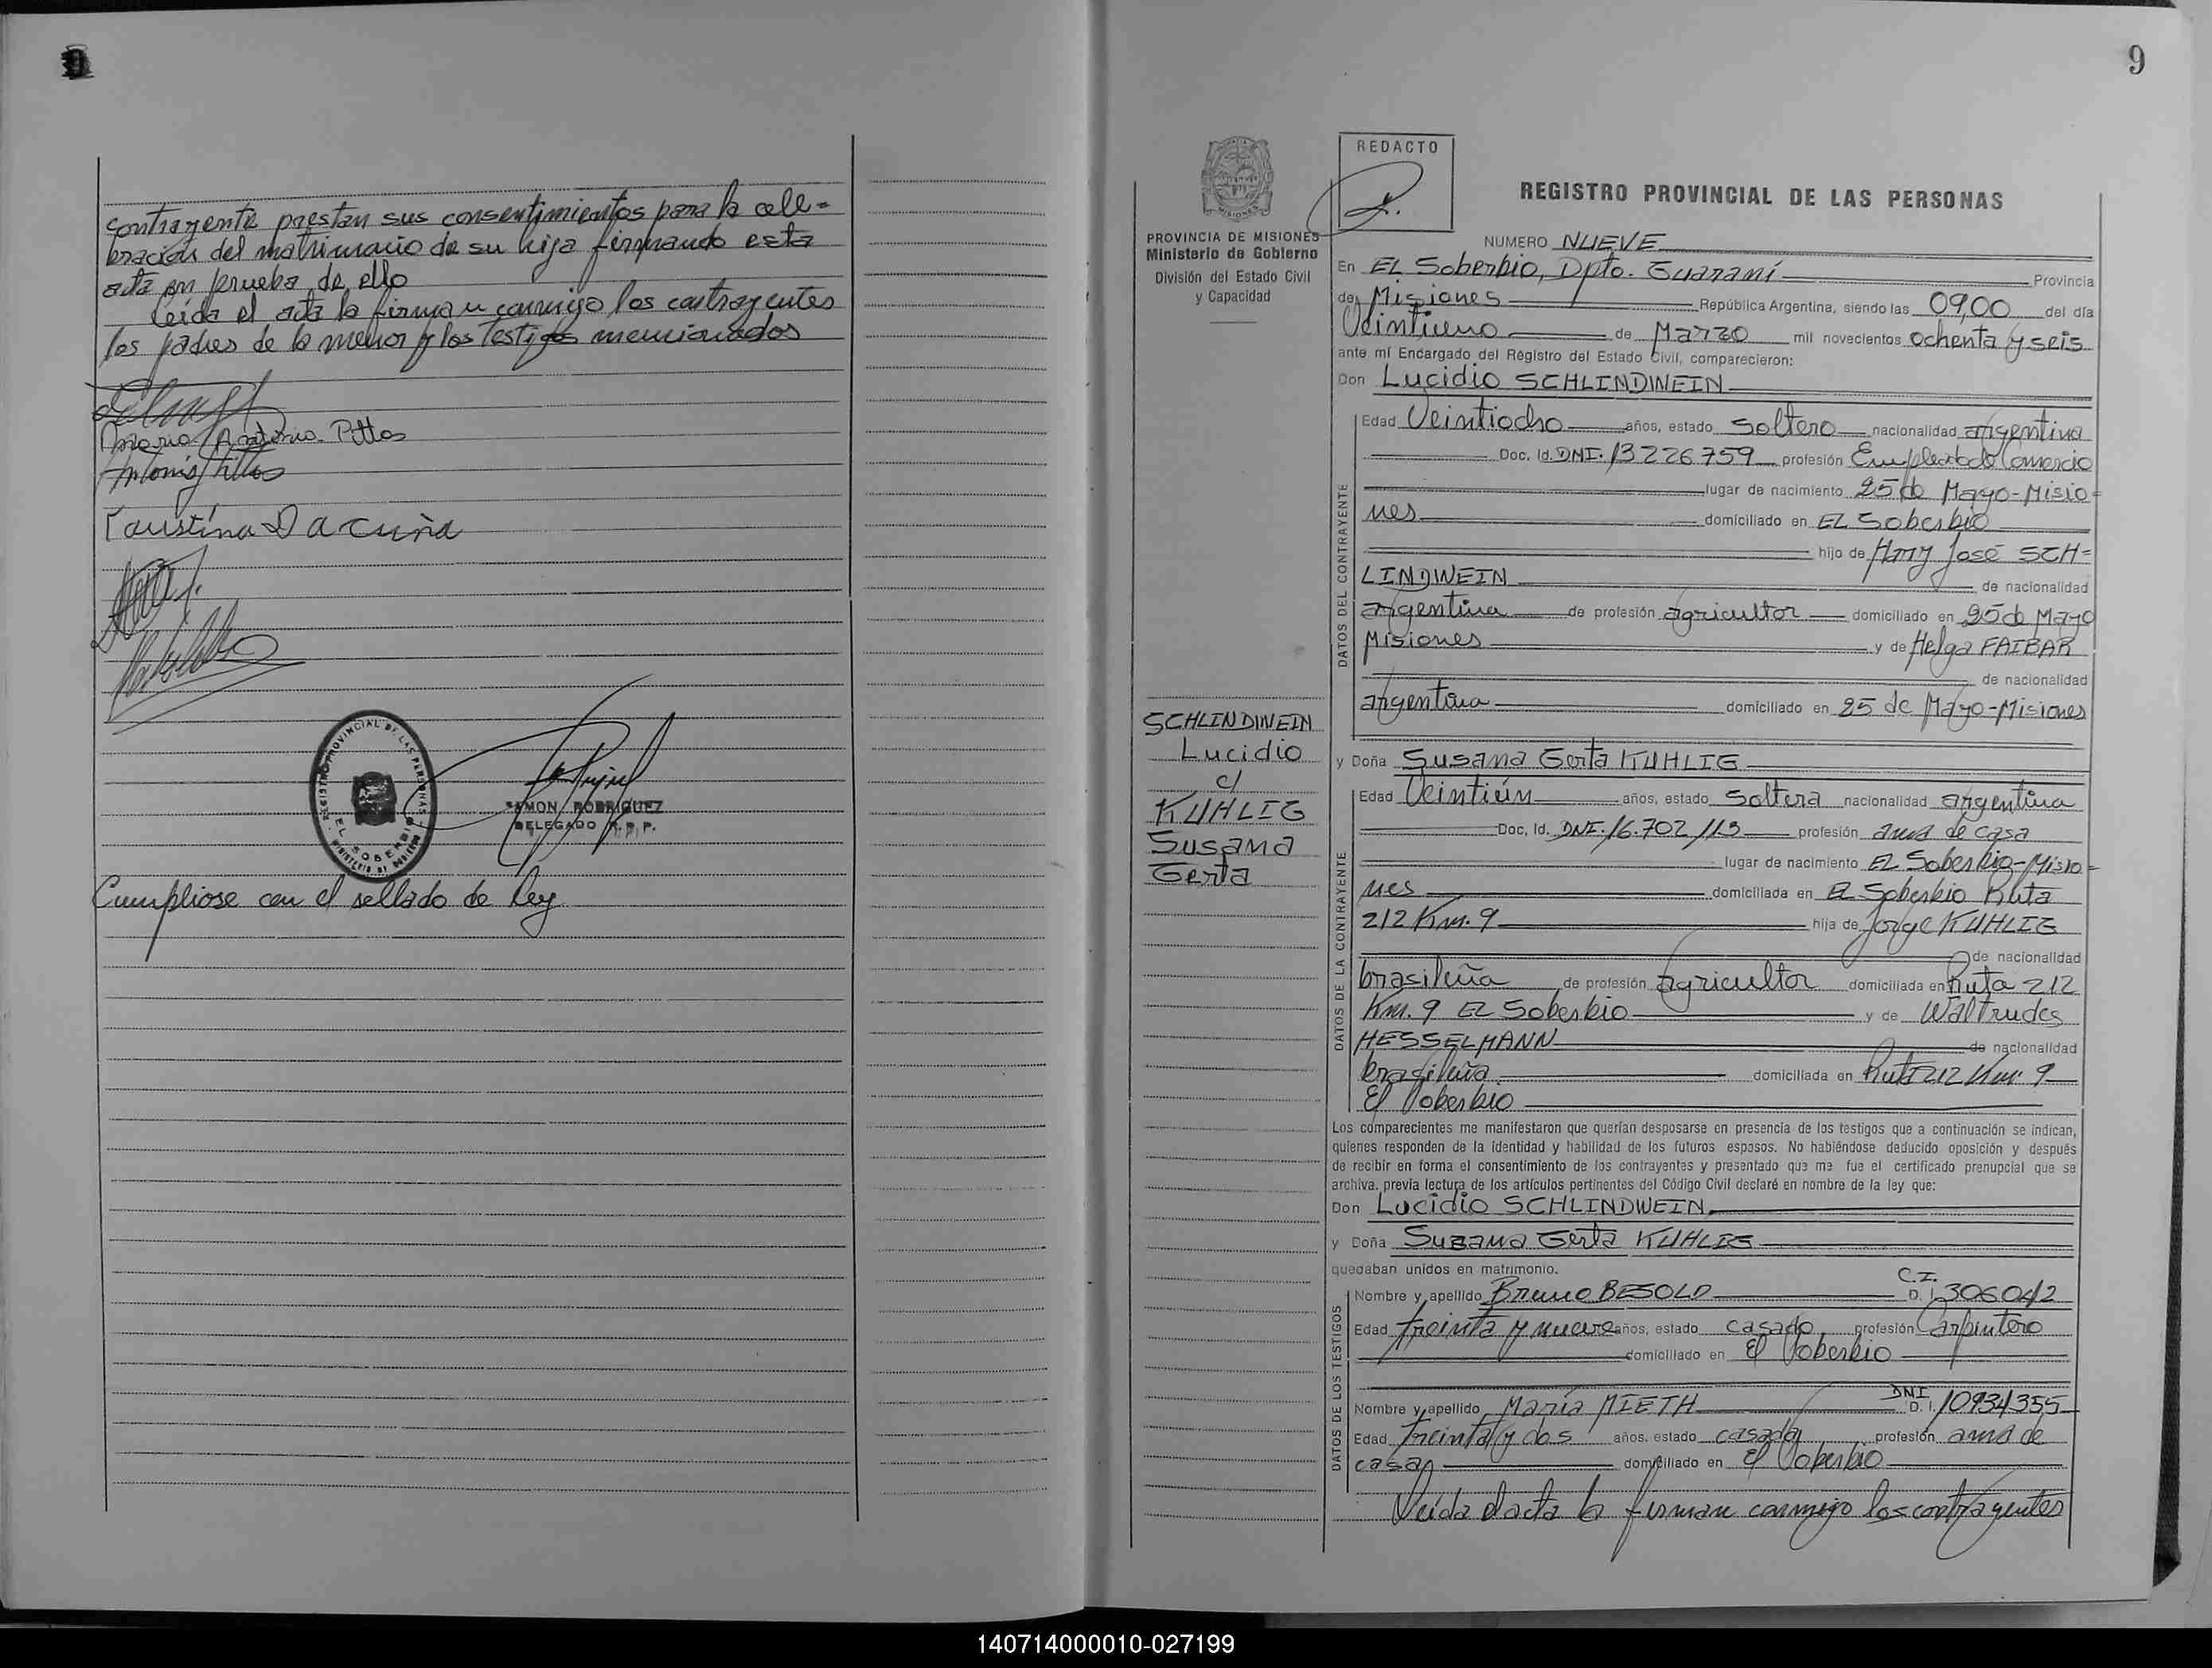 9
contrayente prestan sus consentimientos para la cele=
bración del matrimonio de su hija firmando esta
acta en prueba de ello
Leída el acta la firman conmigo los contrayentes
los padres de la menor y los Testigos mencionados
Maria Antonia Pittos
Antonio Pittos
Faustina Dacuña
REGISTRO PROVINCIAL DE LAS PERSONAS
EL SOBERBIO
RAMON RODRIGUEZ
DELEGADO R. P. P.
Cumpliose con el sellado de Ley
9
PROVINCIA DE MISIONES
Ministerio de Gobierno
División del Estado Civil
y Capacidad
SCHLINDWEIN
Lucidio
c/
KUHLIG
Susana
Gerta
REDACTO
REGISTRO PROVINCIAL DE LAS PERSONAS
NUMERO NUEVE
En EL Soberbio, Dpto. Guaraní Provincia
de Misiones República Argentina, siendo las 09,00 del día
Veintiuno de Marzo mil novecientos ochenta y seis
ante mí Encargado del Registro del Estado Civil, comparecieron:
Don Lucidio SCHLINDWEIN
DATOS DEL CONTRAYENTE
Edad Veintiocho años, estado Soltero nacionalidad argentina
Doc. Id. DNI. 13226759 profesión Empleado Comercio
lugar de nacimiento 25 de Mayo-Misio=
nes domiciliado en EL Soberbio
hijo de Arny José SCH=
LINDWEIN de nacionalidad
argentina de profesión agricultor domiciliado en 25 de Mayo
Misiones y de Helga FAIBAR
de nacionalidad
argentina domiciliado en 25 de Mayo-Misiones
y Doña Susana Gerta KUHLIG
DATOS DE LA CONTRAYENTE
Edad Veintiún años, estado Soltera nacionalidad argentina
Doc. Id. DNI. 16.702.113 profesión ama de casa
lugar de nacimiento EL Soberbio-Misio=
nes domiciliada en EL Soberbio Ruta
212 Km. 9 hija de Jorge KUHLIG
de nacionalidad
brasileña de profesión agricultor domiciliada en Ruta 212
Km. 9 EL Soberbio y de Waltrudes
HESSELMANN de nacionalidad
brasileña domiciliada en Ruta 212 Km. 9
El Soberbio
Los comparecientes me manifestaron que querían desposarse en presencia de los testigos que a continuación se indican,
quienes responden de la identidad y habilidad de los futuros esposos. No habiéndose deducido oposición y después
de recibir en forma el consentimiento de los contrayentes y presentado que me fue el certificado prenupcial que se
archiva, previa lectura de los artículos pertinentes del Código Civil declaré en nombre de la ley que:
Don Lucidio SCHLINDWEIN
y Doña Susana Gerta KUHLIG
quedaban unidos en matrimonio.
DATOS DE LOS TESTIGOS
Nombre y apellido Bruno BESOLD C.I. D. I. 306042
Edad treinta y nueve años, estado casado profesión Carpintero
domiciliado en El Soberbio
Nombre y apellido María MIETH DNI D. I. 10934355
Edad treinta y dos años, estado casada profesión ama de
casa domiciliado en El Soberbio
Leída el acta la firman conmigo los contrayentes
140714000010-027199